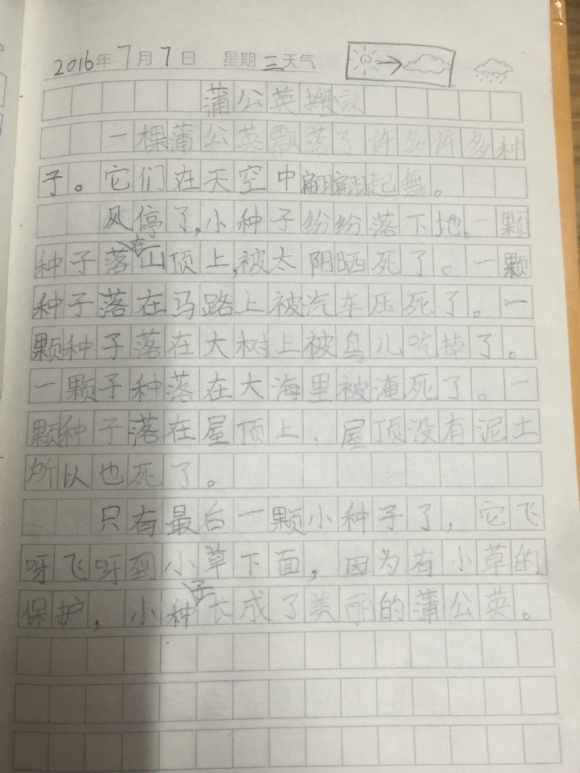 2016年7月7日 星期三天气
蒲公英搬家
一棵蒲公英飘落了许多许多种
子。它们在天空中翩翩起舞。
风停了,小种子纷纷落下地。一颗
种子落在山顶上,被太阳晒死了。一颗
种子落在马路上被汽车压死了。一
颗种子落在大树上被鸟儿吃掉了。
一颗子种落在大海里被淹死了。一
颗种子落在屋顶上、屋顶没有泥土
所以也死了。
只有最后一颗小种子了,它飞
呀飞呀到小草下面,因为有小草的
保护,小种子长成了美丽的蒲公英。